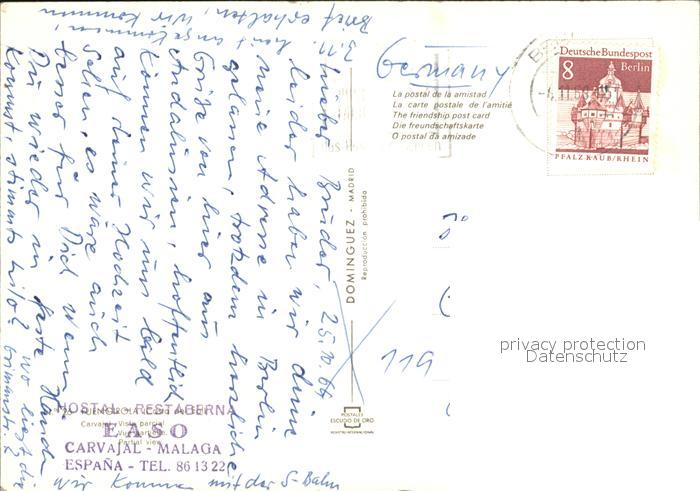 Germany
La postal de la amistad
La carte postale de l'amitié
The friendship post card
Die freundschaftskarte
O postal da amizade
Deutsche Bundespost
8 Berlin
PFALZ KAUB/RHEIN
DOMINGUEZ - MADRID
Reproducción prohibida
POSTALES
ESCUDO DE ORO
119
privacy protection
Datenschutz
Lieber Bruder, 25.10.66
leider haben wir deine
neue Adresse in Berlin
gelassen, trotzdem herzliche
Grüße von hier aus
Andalusien, hoffentlich
können wir uns bald
auf deiner Hochzeit
sehen, es wäre auch
besser für Dich wenn
Du wieder in feste Hände
kommst, stimmts
3.11.
Brief erhalten, wir kommen
wir kommen mit der S-Bahn
HOSTAL - REST. ALBERNA
EASO
CARVAJAL - MALAGA
ESPAÑA - TEL. 86 13 22
Partial view